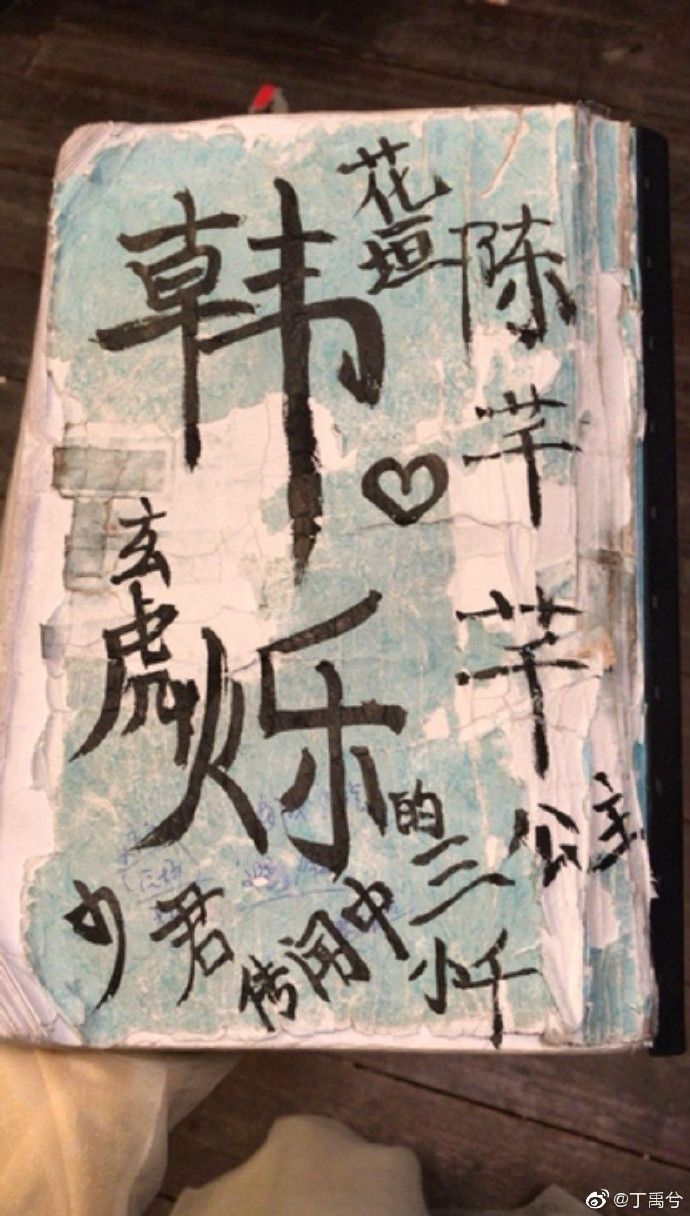 韩烁
花垣
陈芊芊
玄虎
少君
传闻中的三公主
小千
@丁禹兮